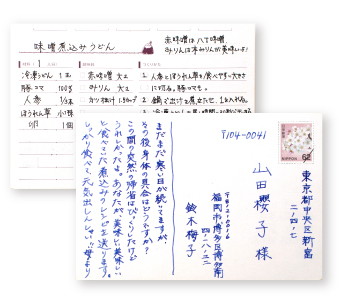 味噌煮込みうどん
赤味噌は八丁味噌、
みりんは本みりんが美味いよ!
冷凍うどん 1玉
豚コマ 100g
人参 1/3本
ほうれん草 小1株
卵 1個
赤味噌 大2
みりん 大2
かつお出汁 1.5カップ
1. 人参とほうれん草を食べやすい大きさ
に切る。豚コマも。
2. 鍋で出汁を煮立たせ、1を入れる。
〒104-0041
東京都中央区新富
二ノ四ノ七
山田櫻子様
福岡市博多区博多南
四ノ八ノ二二
鈴木梅子
まだまだ寒い日が続いてますが、
その後身体の具合はどうですか?
この間の突然の帰省はびっくりしたけど
うれしかったよ。あなたが美味しい美味しい
と食べていた煮込みのレシピを送ります。
しっかり食べて、元気出しんしゃい!!母より
NIPPON
62